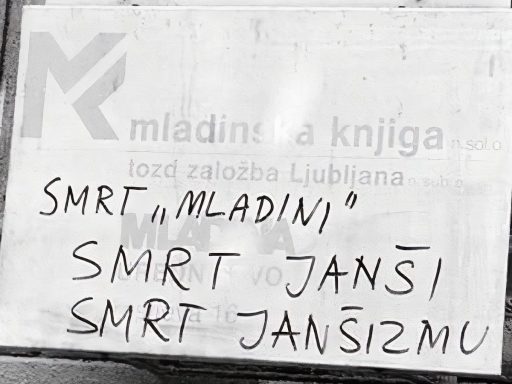 mladinska knjiga n.sol.o
tozd založba Ljubljana n.sub.o
SMRT „MLADINI”
MLADINA
SMRT JANŠI
SMRT JANŠIZMU